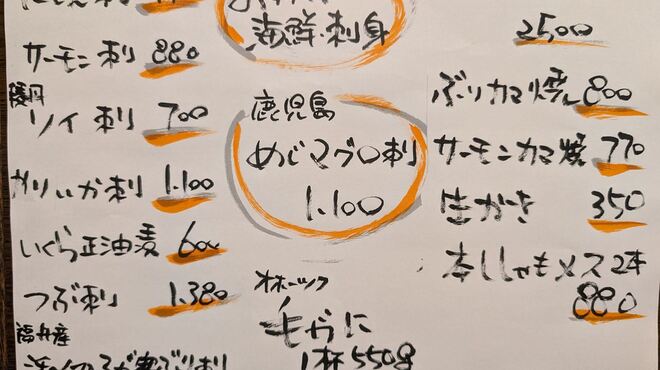 サーモン刺 880
ソイ刺 700
やりいか刺 1.100
いくら正油漬 600
つぶ刺 1.380
福井産
海鮮・刺身
鹿児島
めじマグロ刺
1.100
オホーツク
毛がに
1杯550g
2500
ぶりカマ焼 800
サーモンカマ焼 770
生かき 350
本ししゃもメス2本
880